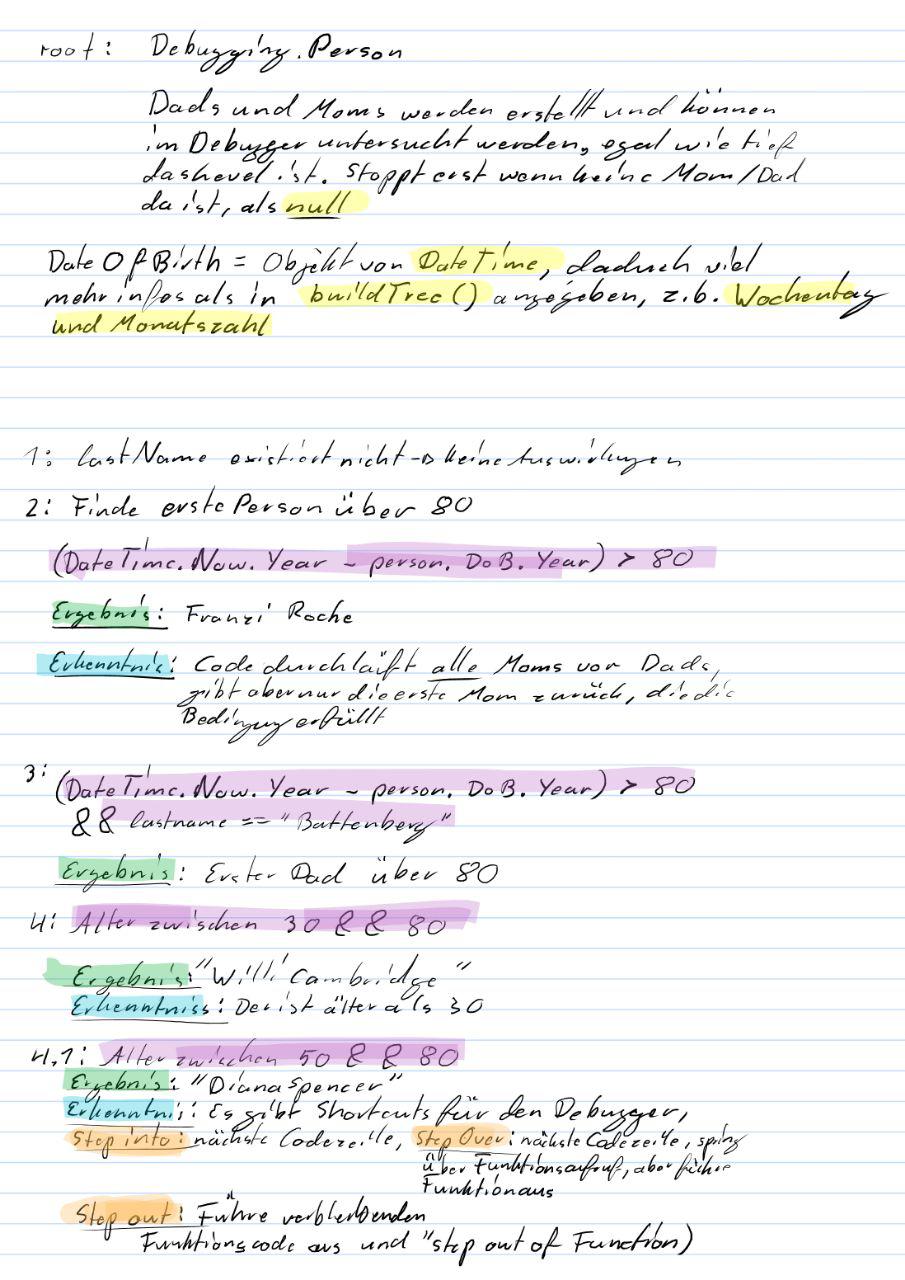 root: Debugging.Person
Dads und Moms werden erstellt und können
im Debugger untersucht werden, egal wie tief
das Level ist. Stoppt erst wenn keine Mom/Dad
da ist, als null
Date Of Birth = Objekt von DateTime, daduch viel
mehr infos als in buildTree() angegeben, z.b. Wochentag
und Monatszahl
1: lastName existiert nicht -> keine Auswirkungen
2: Finde erste Person über 80
(DateTime.Now.Year - person.DoB.Year) > 80
Ergebnis: Franzi Roche
Erkenntnis: Code durchläuft alle Moms vor Dads,
gibt aber nur die erste Mom zurück, die die
Bedingug erfüllt
3: (DateTime.Now.Year - person.DoB.Year) > 80
&& lastname == "Battenberg"
Ergebnis: Erster Dad über 80
4: Alter zwischen 30 && 80
Ergebnis: "Willi Cambridge"
Erkenntniss: Der ist älter als 30
4,1: Alter zwischen 50 && 80
Ergebnis: "Diana Spencer"
Erkenntnis: Es gibt Shortcuts für den Debugger,
Step into: nächste Codezeile, Step Over: nächste Codezeile, spring
über Funktionsaufruf, aber führe
Funktion aus
Step out: Führe verbleibenden
Funktionscode aus und "step out of Function)